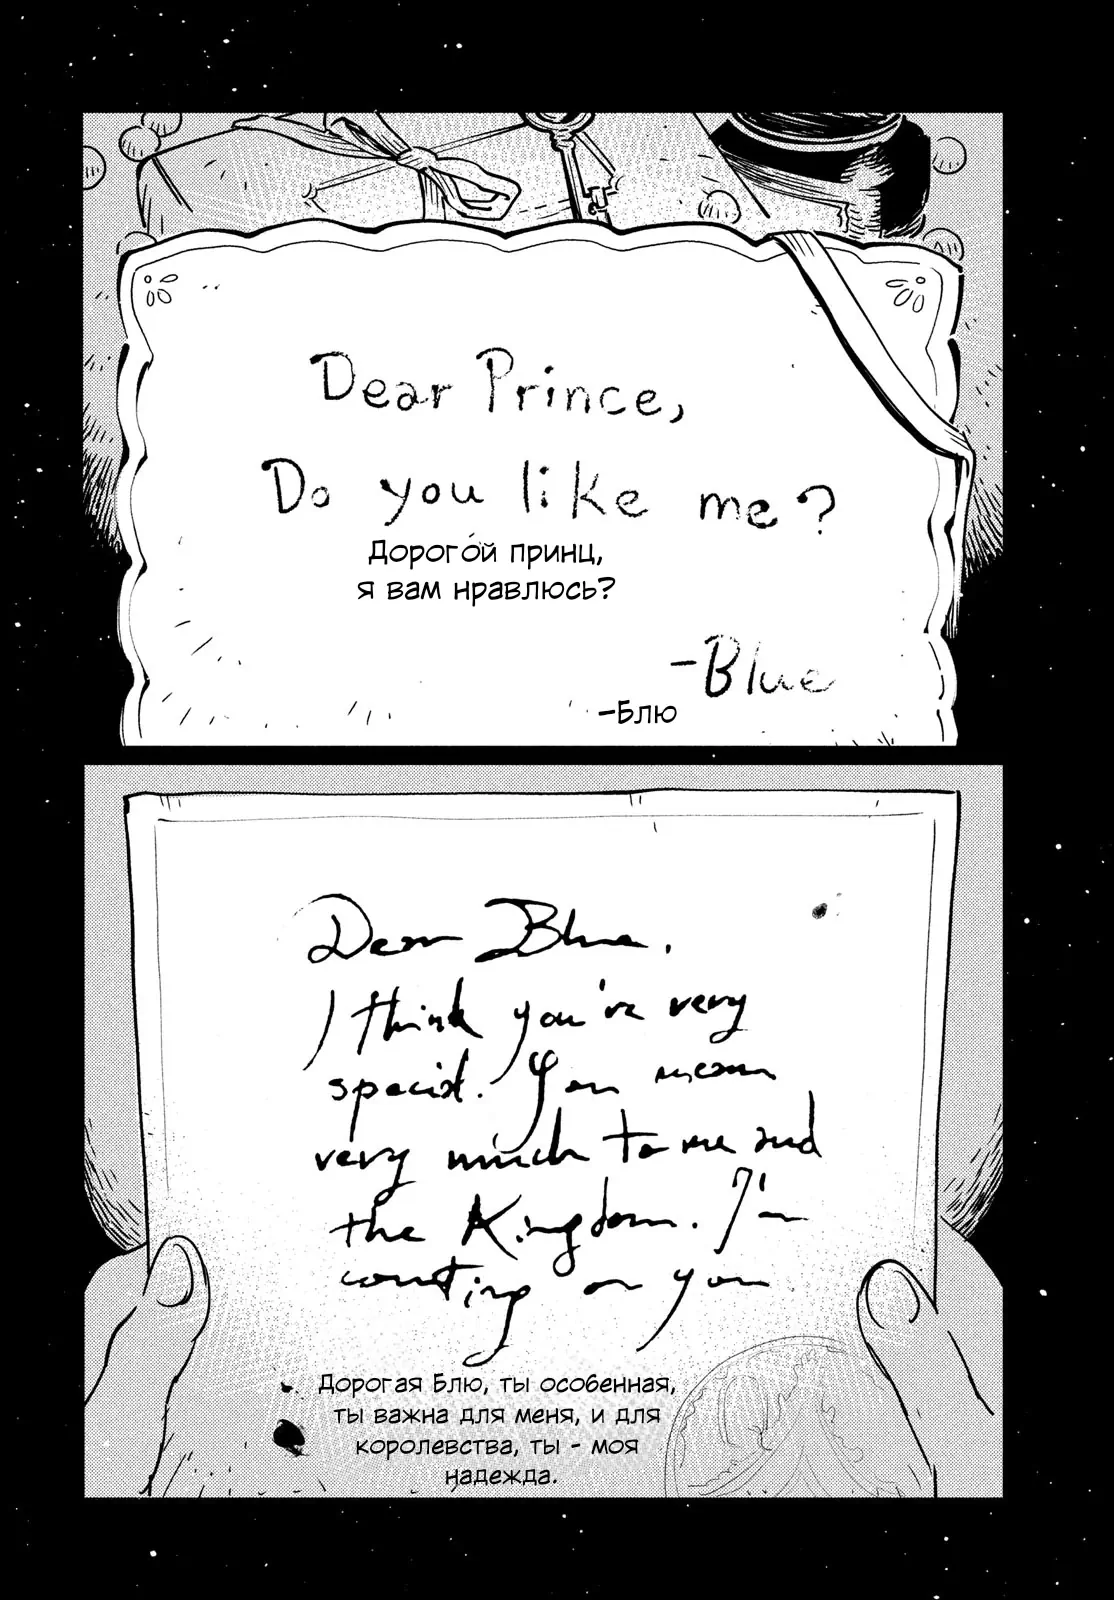 Dear Prince,
Do you like me?
Дорого́й принц,
я вам нравлюсь?
-Blue
-Блю
Dear Blue,
I think you're very
special. You mean
very much to me and
the Kingdom. I'm
counting on you
Дорогая Блю, ты особенная,
ты важна для меня, и для
королевства, ты - моя
надежда.